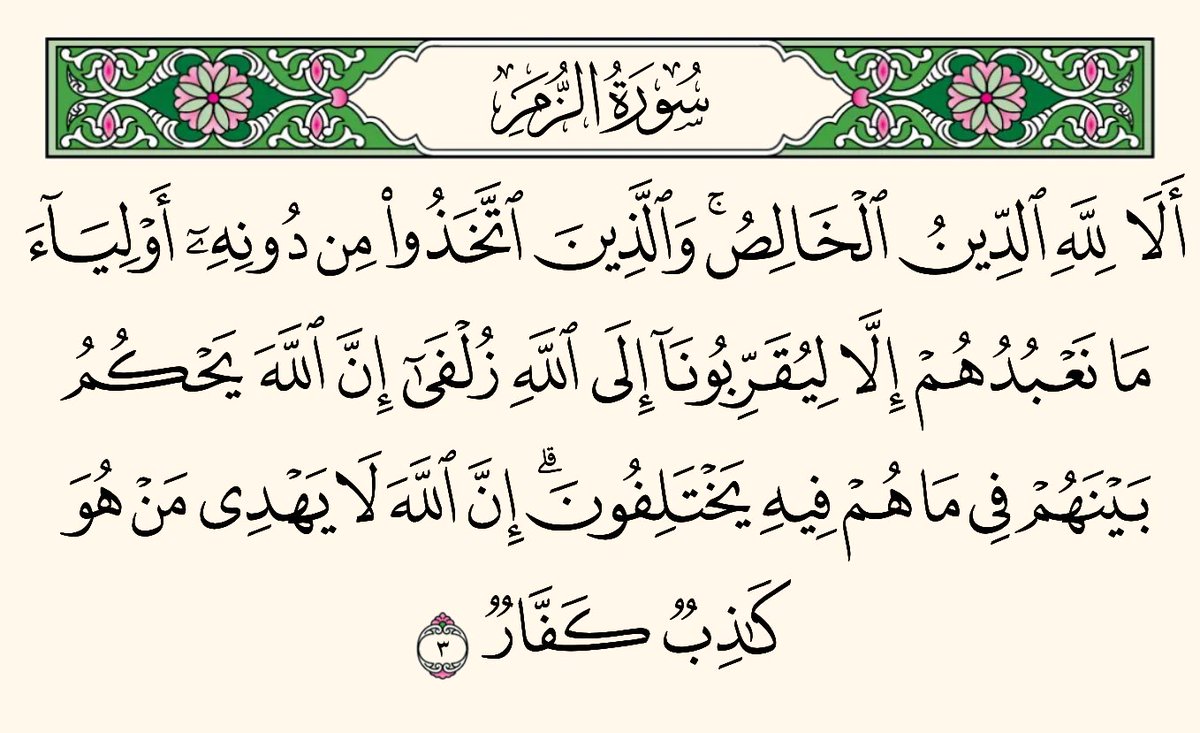 سُورَةُ الزُّمَرِ
أَلَا لِلَّهِ ٱلدِّينُ ٱلۡخَالِصُۚ وَٱلَّذِينَ ٱتَّخَذُواْ مِن دُونِهِۦٓ أَوۡلِيَآءَ
مَا نَعۡبُدُهُمۡ إِلَّا لِيُقَرِّبُونَآ إِلَى ٱللَّهِ زُلۡفَىٰٓ إِنَّ ٱللَّهَ يَحۡكُمُ
بَيۡنَهُمۡ فِي مَا هُمۡ فِيهِ يَخۡتَلِفُونَۗ إِنَّ ٱللَّهَ لَا يَهۡدِي مَنۡ هُوَ
كَٰذِبٞ كَفَّارٞ ٣